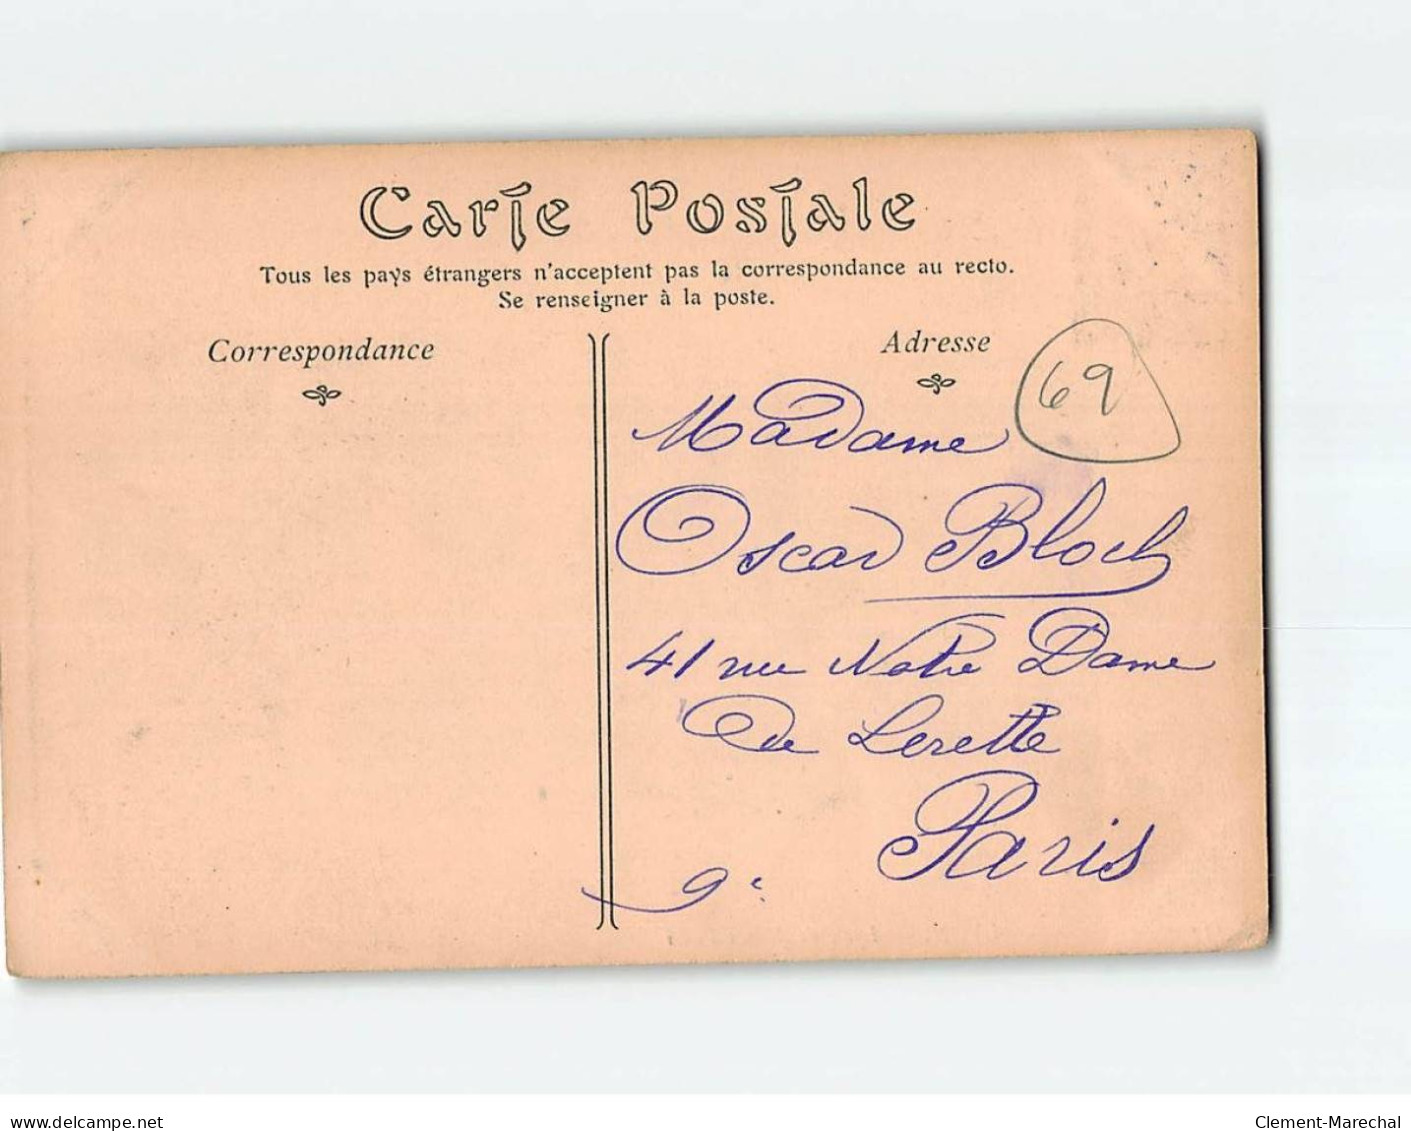 Carte Postale
Tous les pays étrangers n'acceptent pas la correspondance au recto.
Se renseigner à la poste.
Correspondance
Adresse
69
Madame
Oscar Bloch
41 rue Notre Dame
de Lorette
Paris
9e
www.delcampe.net
Clement-Marechal